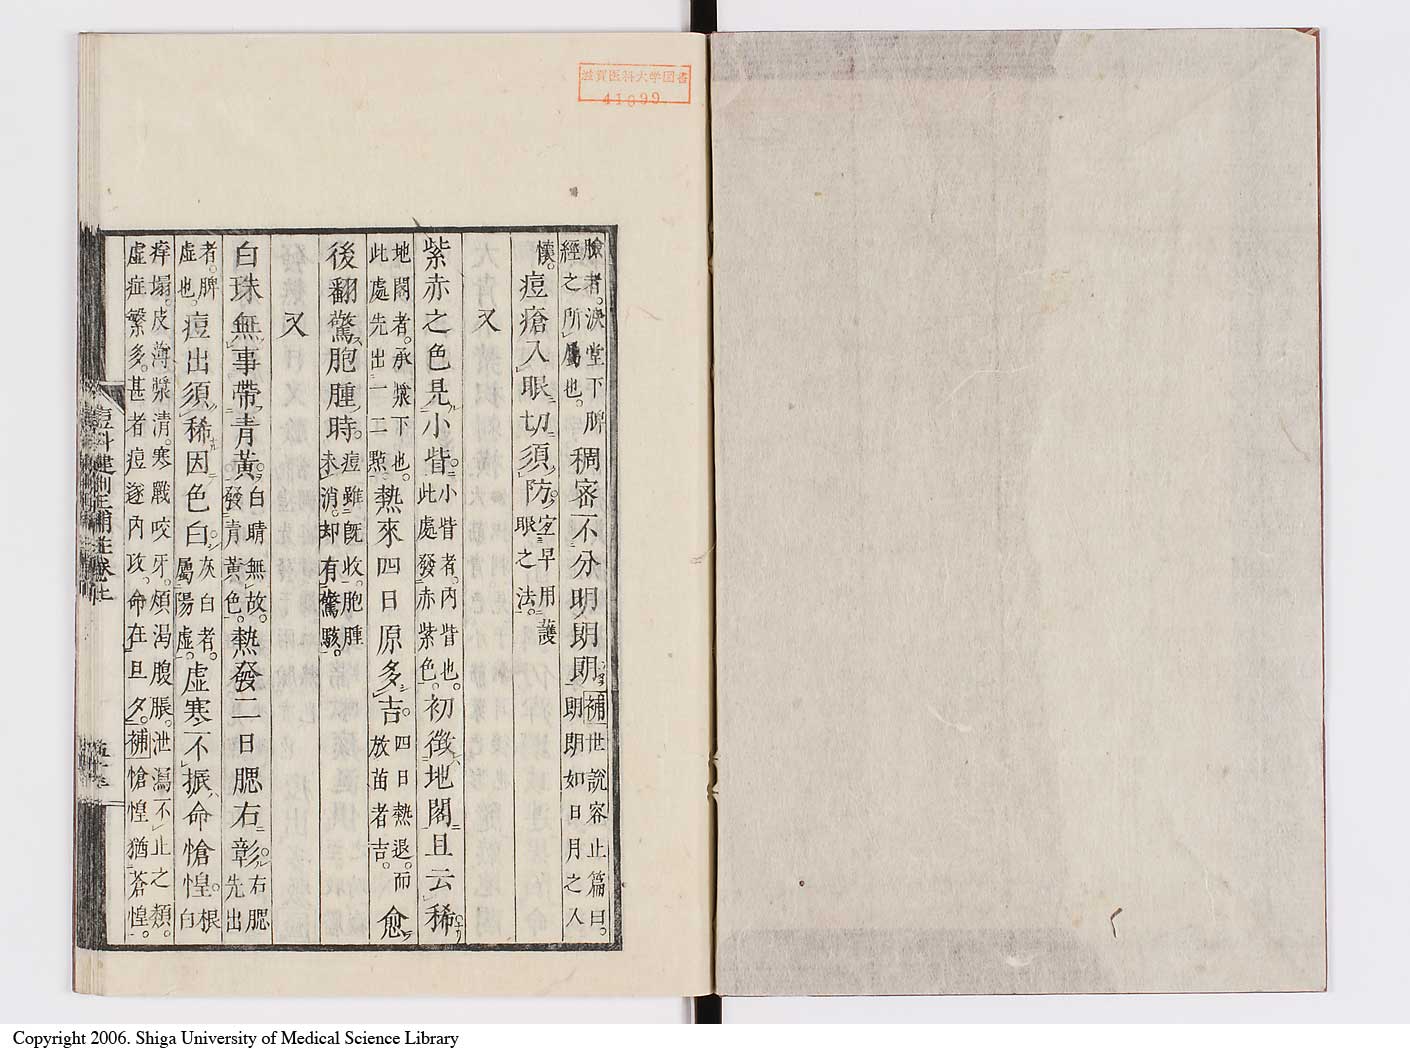 滋賀医科大学図書
41099
臉者。淚堂下脾
經之所屬也。
稠密不分明朗朗
補世說容止篇曰。
朗朗如日月之入
懷。
痘瘡入眼切須防。
宜早用護
眼之法。
又
紫赤之色見小眥。
小眥者。內眥也。
此處發赤紫色。
初徵地閣且云稀
地閣者。承漿下也。
此處先出一二點。
熱來四日原多吉。
四日熱退。而
放苗者吉。
愈
後翻驚胞腫時。
痘雖既收。胞腫
未消。却有驚駭。
又
白珠無事帶青黃。
白睛無故。
發青黃色。
熱發二日腮右彰。
右腮
先出
者。脾
虛也。
痘出須稀因色白。
灰白者。
屬陽虛。
虛寒不振命愴惶。
根
白
痒塌。皮薄漿清。寒戰咬牙。煩渴腹脹。泄瀉不止之類。
虛症繁多。甚者痘遂內攻。命在旦夕。補愴惶猶蒼惶。
痘科鍵刪正補註卷上
Copyright 2006. Shiga University of Medical Science Library